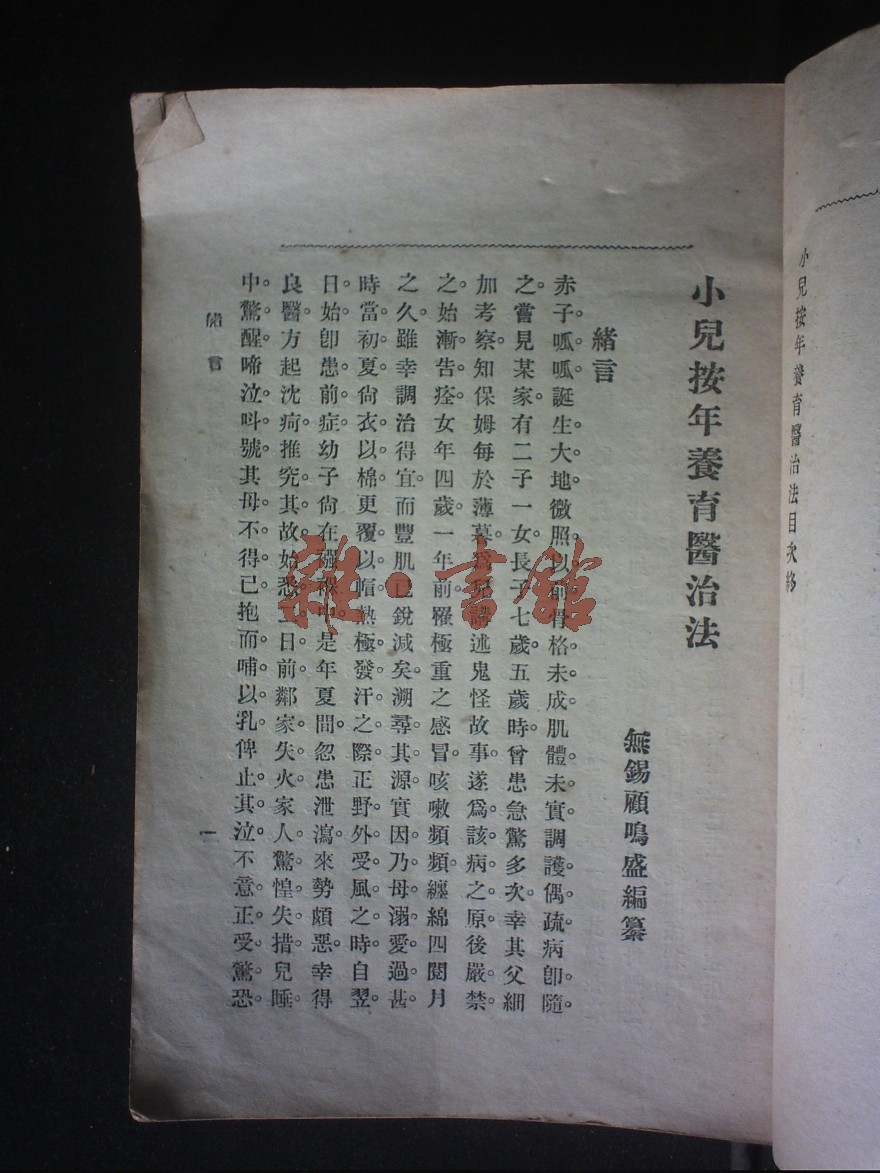 小兒按年養育醫治法
無錫顧鳴盛編纂
緒言
赤子。呱呱誕生。大地微照以前。骨格未成。肌體未實。調護偶疏。病卽隨。
之。嘗見某家有二子一女。長子七歲。五歲時。曾患急驚多次。幸其父細
加考察。知保姆每於薄暮。爲兒講述鬼怪故事。遂爲該病之原。後嚴禁
之。始漸告痊。女年四歲。一年前。罹極重之感冒。咳嗽頻頻。纏綿四閱月
之久。雖幸調治得宜。而豐肌已銳減矣。溯尋其源。實因乃母溺愛過甚。
時當初夏。尙衣以棉。更覆以帽。熱極發汗之際。正野外受風之時。自翌。
日。始卽患前症。幼子尙在襁褓中。是年夏間。忽患泄瀉。來勢頗惡。幸得
良醫。方起沈疴。推究其故。始悉二日前。鄰家失火。家人驚惶失措。兒睡。
中。驚醒。啼泣呌號。其母不得已。抱而哺以乳。俾止其泣。不意正受驚恐。
緒言
一
小兒按年養育醫治法目次終
雜·書館